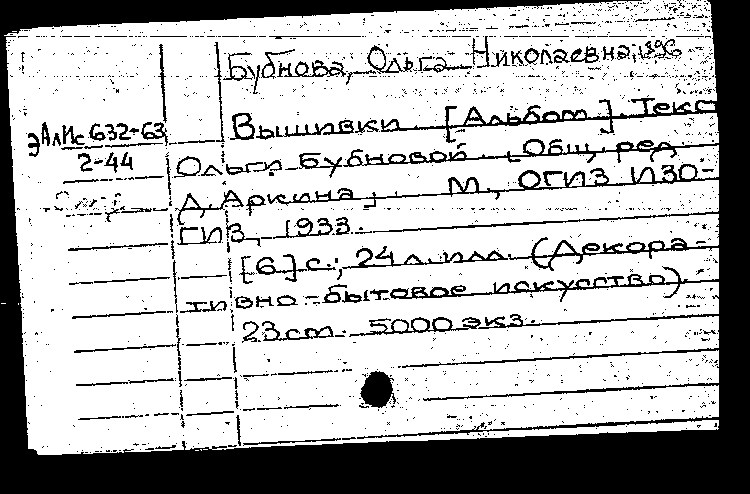 Бубнова, Ольга Николаевна, 1896-
ЭАлИс 632-63
2-44
Вышивки. [Альбом]. Текст
Ольги Бубновой. Общ. ред
Д. Аркина, М., ОГИЗ ИЗО-
ГИЗ, 1933.
[6] с.; 24 л. илл. (Декора-
тивно-бытовое искусство).
23 см. 5000 экз.